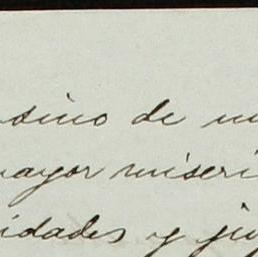 sino de
mayor miseri
idades y